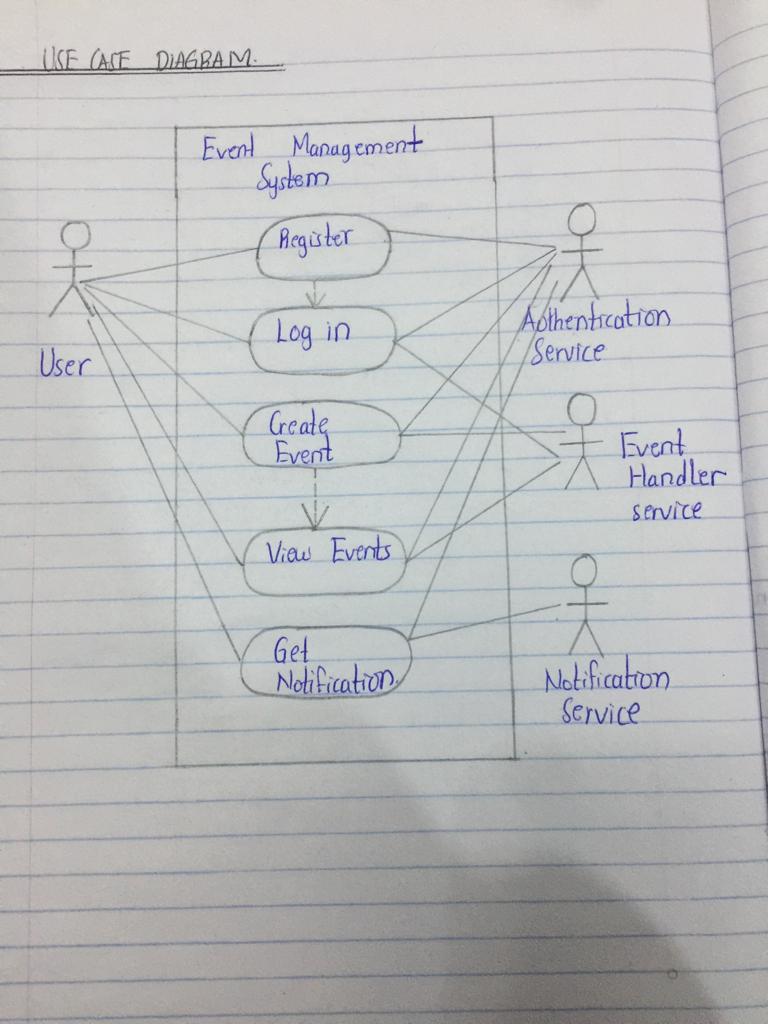 USE CASE DIAGRAM.
Event Management
System
Register
Log in
Create
Event
View Events
Get
Notification.
User
Authentication
Service
Event
Handler
service
Notification
Service